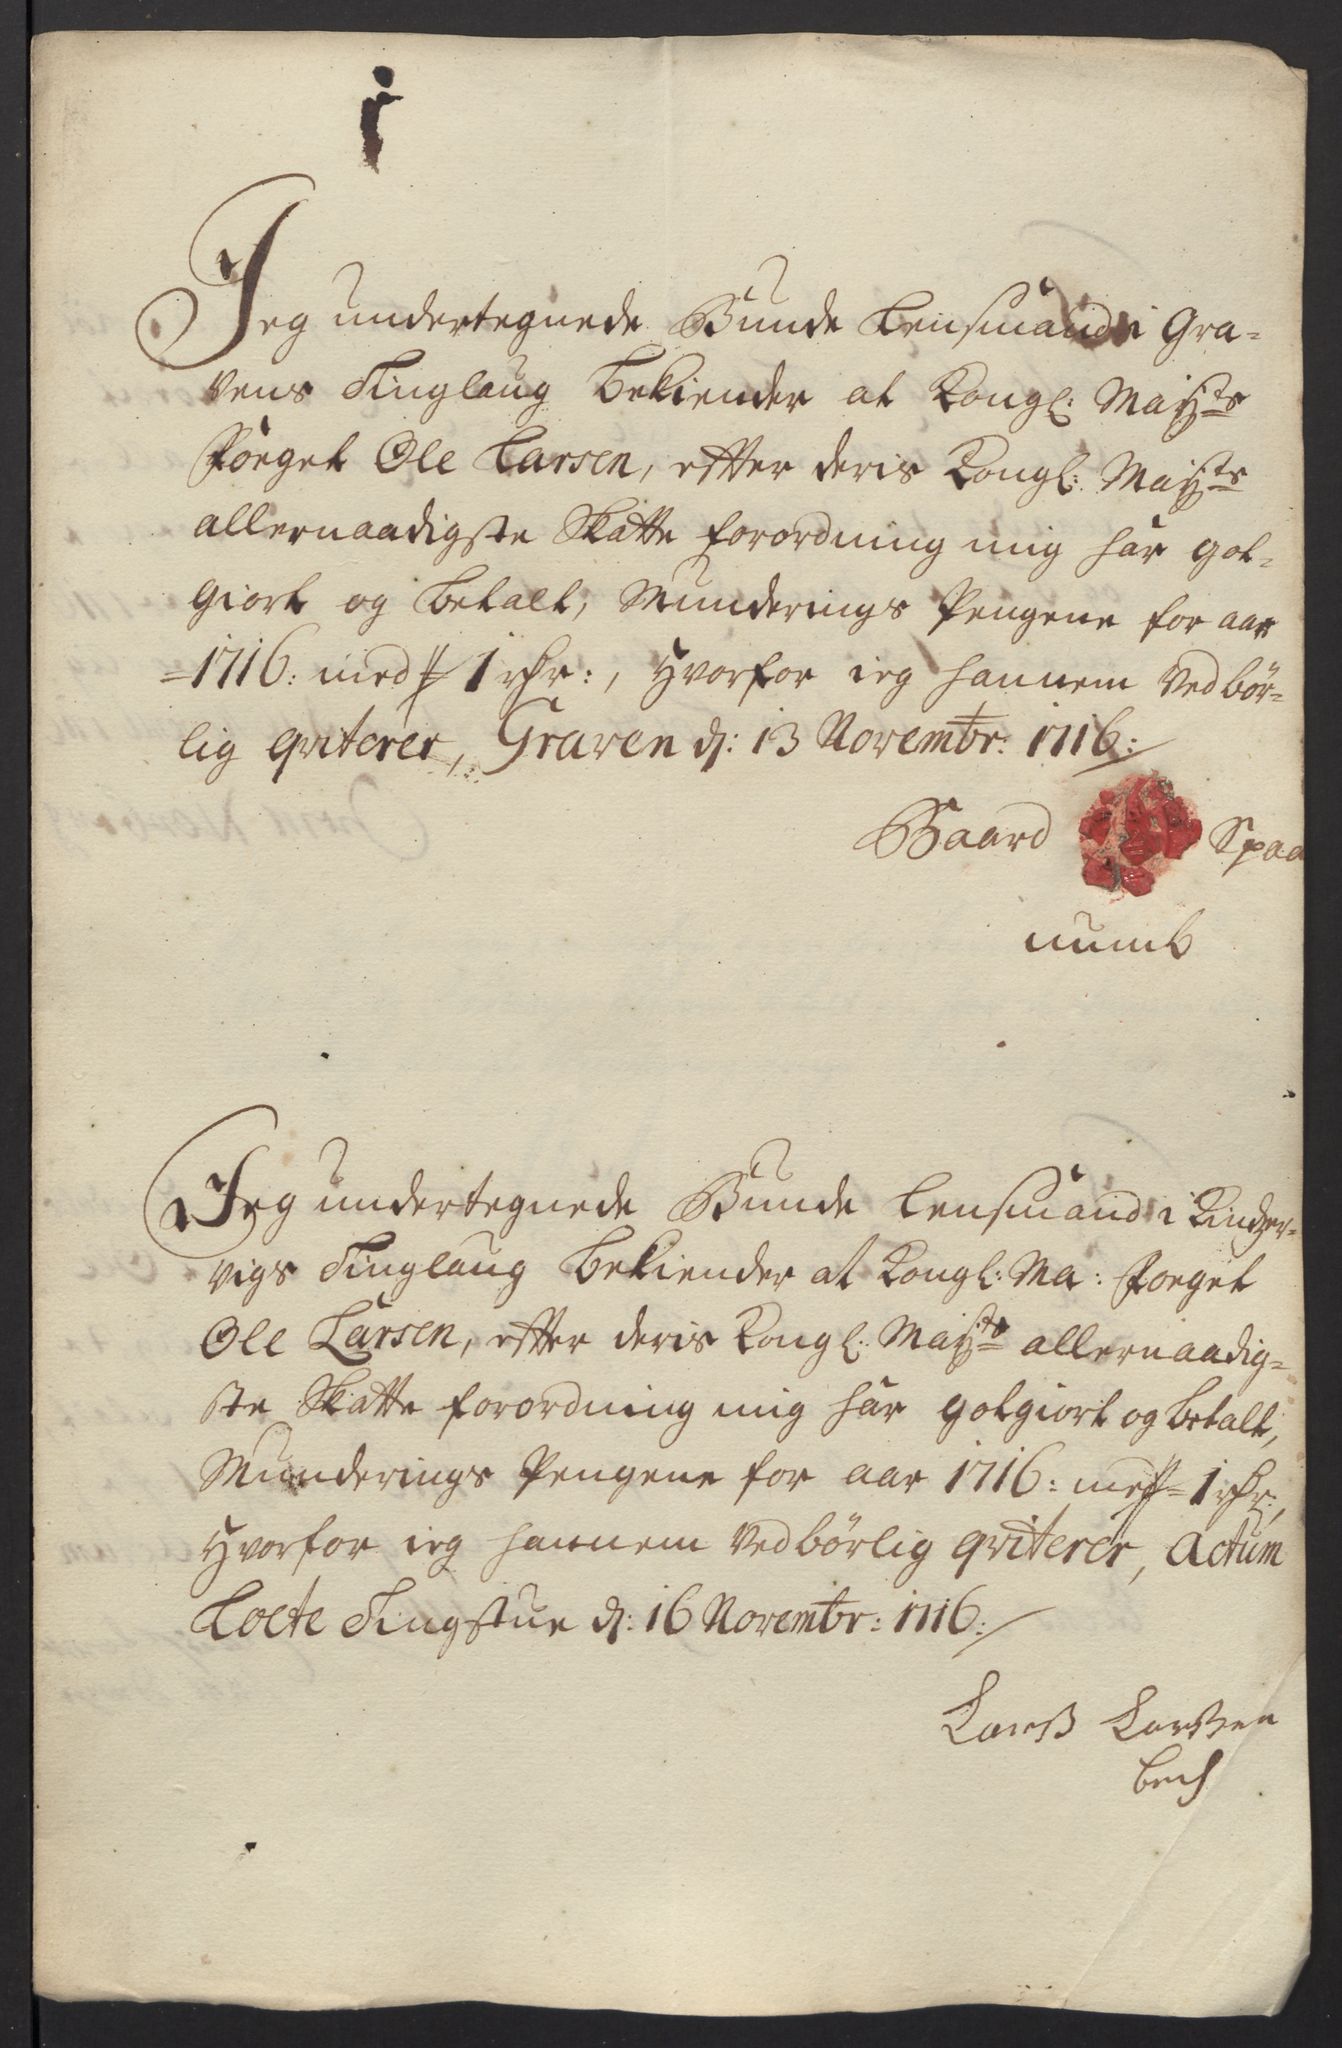 Jeg undertegnede Bunde Lensmand i Gra-
vens Tinglaug Bekiender at Kongl: Maÿts
Foeget Ole Larsen, efter deris Kongl: Maÿts
allernaadigste Skatte forordning mig har got-
giort og Betalt, Munderings Pengene for aar
1716: med 1 rdr:, hvorfor ieg hannem Vedbør-
lig qviterer, Graven d: 13 Novembr: 1716:/
Baard Spaa
numb
Jeg undertegnede Bunde Lensmand i Kindzer-
vigs Tinglaug Bekiender at Kongl: Ma: Foeget
Ole Larsen, efter deris Kongl: Maÿts allernaadig-
ste Skatte forordning mig har gotgiort og betalt,
Munderings Pengene for aar 1716: med 1 rdr:,
hvorfor ieg hannem Vedbørlig qviterer, Actum
Loete Tingstue d: 16 Novembr: 1716:/
Larß Larßen